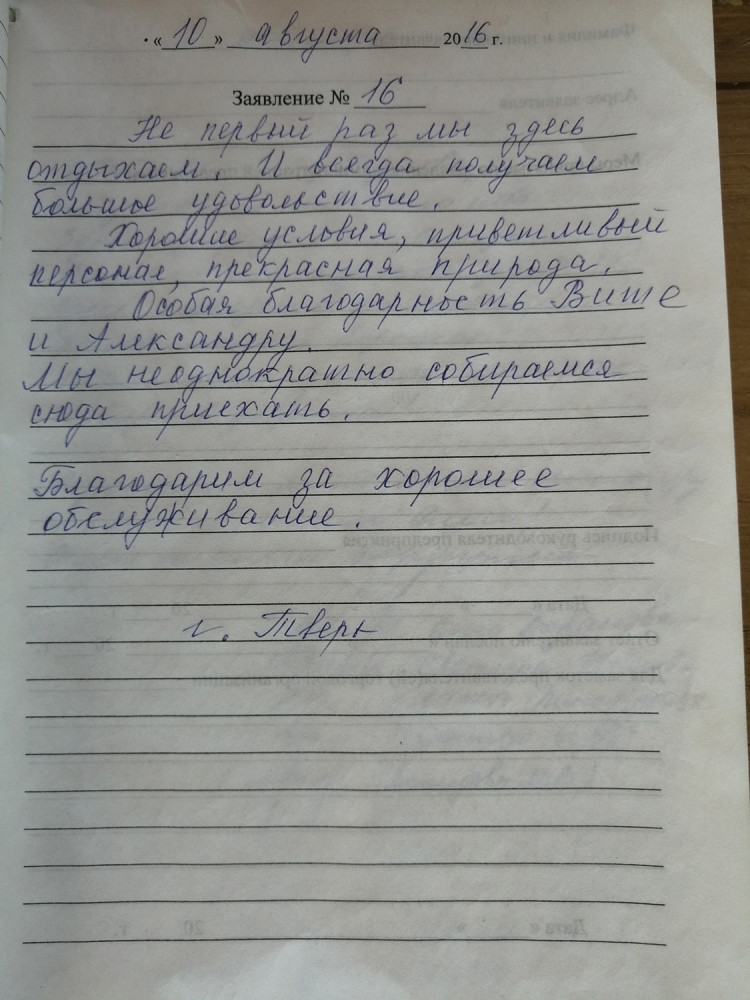 • « 10 » августа 2016 г.
Заявление № 16
Не первый раз мы здесь
отдыхаем. И всегда получаем
большое удовольствие.
Хорошие условия, приветливый
персонал, прекрасная природа.
Особая благодарность Вите
и Александру.
Мы неоднократно собираемся
сюда приехать.
Благодарим за хорошее
обслуживание.
г. Тверь